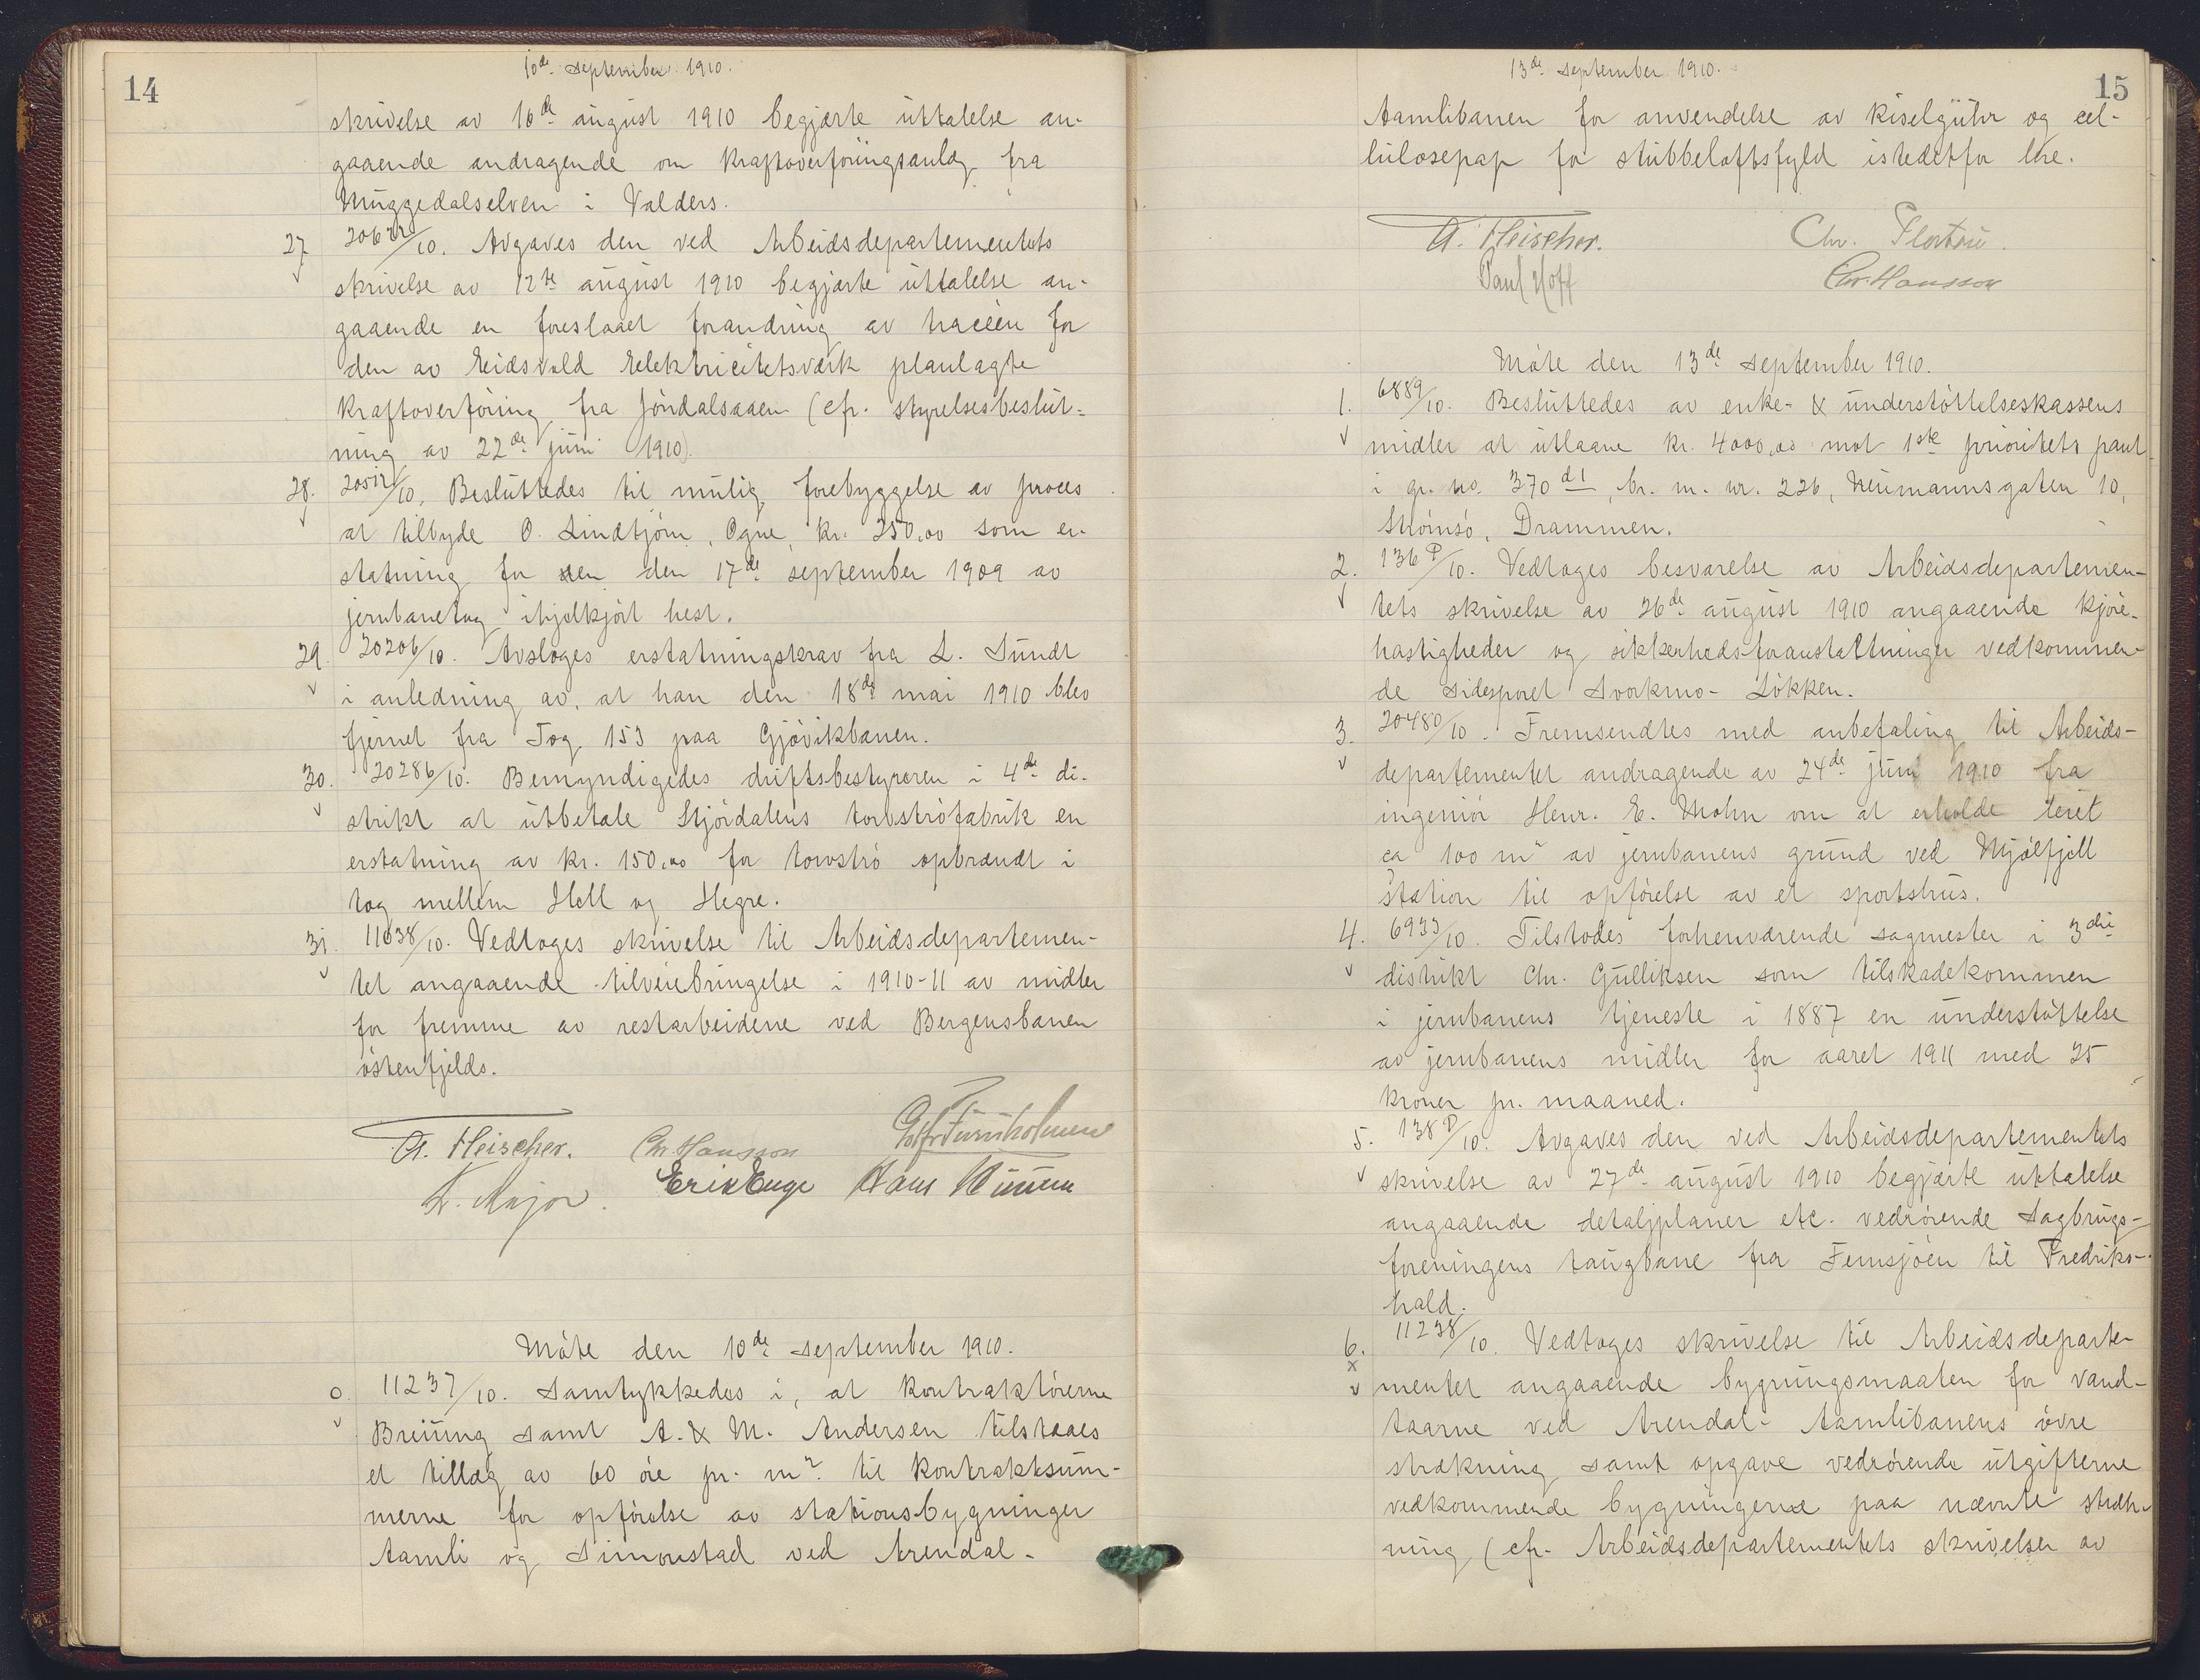 14
10de september 1910.
skrivelse av 16de august 1910 begjærte uttalelse an-
gaaende andragende om kraftoverføringsanlæg fra
Muggedalselven i Valders.
27 20622/10. Avgaves den ved Arbeidsdepartementets
skrivelse av 12te august 1910 begjærte uttalelse an-
gaaende en foreslaaet forandring av traceen for
den av Eidsvold Elektricitetsværk planlagte
kraftoverføring fra Jøndalsaaen (cfr. styrelsesbeslut-
ning av 22de juni 1910).
28. 20512/10. Besluttedes til mulig forebyggelse av proces
at tilbyde O. Lindtjørn, Ogne, kr. 250,00 som er-
statning for den den 17de september 1909 av
jernbanetog ihjelkjørt hest.
29. 20206/10. Avsloges erstatningskrav fra L. Sundt
i anledning av, at han den 18de mai 1910 blev
fjernet fra Tog 153 paa Gjøvikbanen.
30. 20286/10. Bemyndigedes driftsbestyreren i 4de di-
strikt at utbetale Stjørdalens torvstrøfabrik en
erstatning av kr. 150,00 for torvstrø opbrændt i
tog mellem Hell og Hegre.
31. 11038/10. Vedtoges skrivelse til Arbeidsdepartemen-
tet angaaende tilveiebringelse i 1910-11 av midler
for fremme av restarbeidene ved Bergensbanen
østenfjelds.
A. Fleischer. Chr. Hansson
L. Major. Erik Enge Hans
Møte den 10de september 1910.
0. 11237/10. Samtykkedes i, at kontraktørerne
Breiung samt A. & M. Andersen tilstaaes
et tillæg av 60 øre pr. m2. til kontraktsum-
merne for opførelse av stationsbygninger
Aamli og Simonstad ved Arendal-
13de september 1910.
15
Aamlibanen for anvendelse av kiselguhr og cel-
lulosepap for stubbeloftsfyld istedetfor lere.
A. Fleischer. Chr. Platou.
Paul Hoff Chr. Hansson
Møte den 13de september 1910.
1. 6889/10. Besluttedes av enke- & understøttelseskassens
midler at utlaane kr. 4000,00 mot 1ste prioritets pant
i gr. no. 370 d1, br. m. nr. 226, Neumannsgaten 10,
Strømsø, Drammen.
2. 136 P/10. Vedtoges besvarelse av Arbeidsdepartemen-
tets skrivelse av 26de august 1910 angaaende kjøre-
hastigheder og sikkerhedsforanstaltninger vedkommen-
de sidesporet Svorkmo- Løkken.
3. 20480/10. Fremsendtes med anbefaling til Arbeids-
departementet andragende av 24de juni 1910 fra
ingeniør Henr. E. Mohn om at erholde leiet
ca 100 m2 av jernbanens grund ved Mjølfjell
station til opførelse av et sportshus.
4. 6933/10. Tilstodes forhenværende sagmester i 3die
distrikt Chr. Gulliksen som tilskadekommen
i jernbanens tjeneste i 1887 en understøttelse
av jernbanens midler for aaret 1911 med 25
kroner pr. maaned.
5. 138 P/10. Avgaves den ved Arbeidsdepartementets
skrivelse av 27de august 1910 begjærte uttalelse
angaaende detaljplaner etc. vedrørende Sagbrugs-
foreningens taugbane fra Femsjøen til Fredriks-
hald.
6. 11238/10. Vedtoges skrivelse til Arbeidsdeparte-
mentet angaaende bygningsmaaten for vand-
taarne ved Arendal- Aamlibanens øvre
strækning samt opgave vedrørende utgifterne
vedkommende bygningerne paa nævnte stræk-
ning (cfr. Arbeidsdepartementets skrivelser av